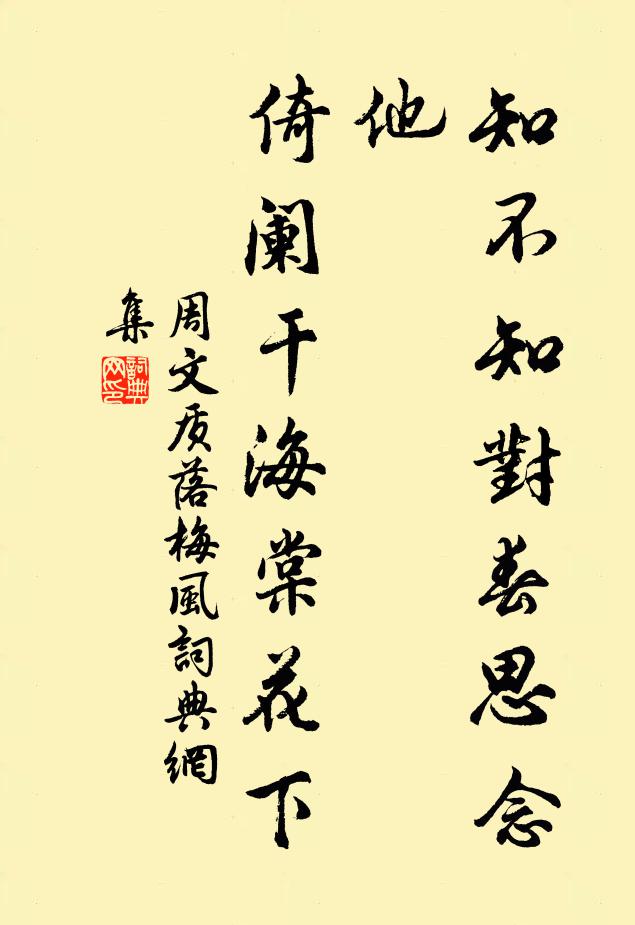 知不知對春思念
他
倚阑干海棠花下
周文质落梅風詞典網
集
詞典
网印